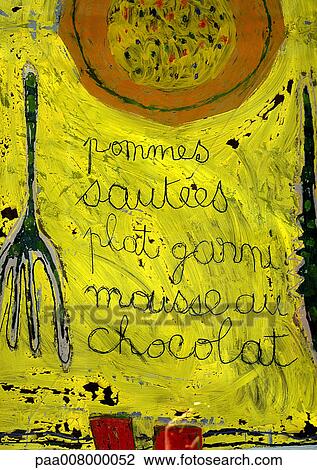 pommes
sautées
plat garni
mousse au
chocolat
FOTOSEARCH
paa008000052 www.fotosearch.com